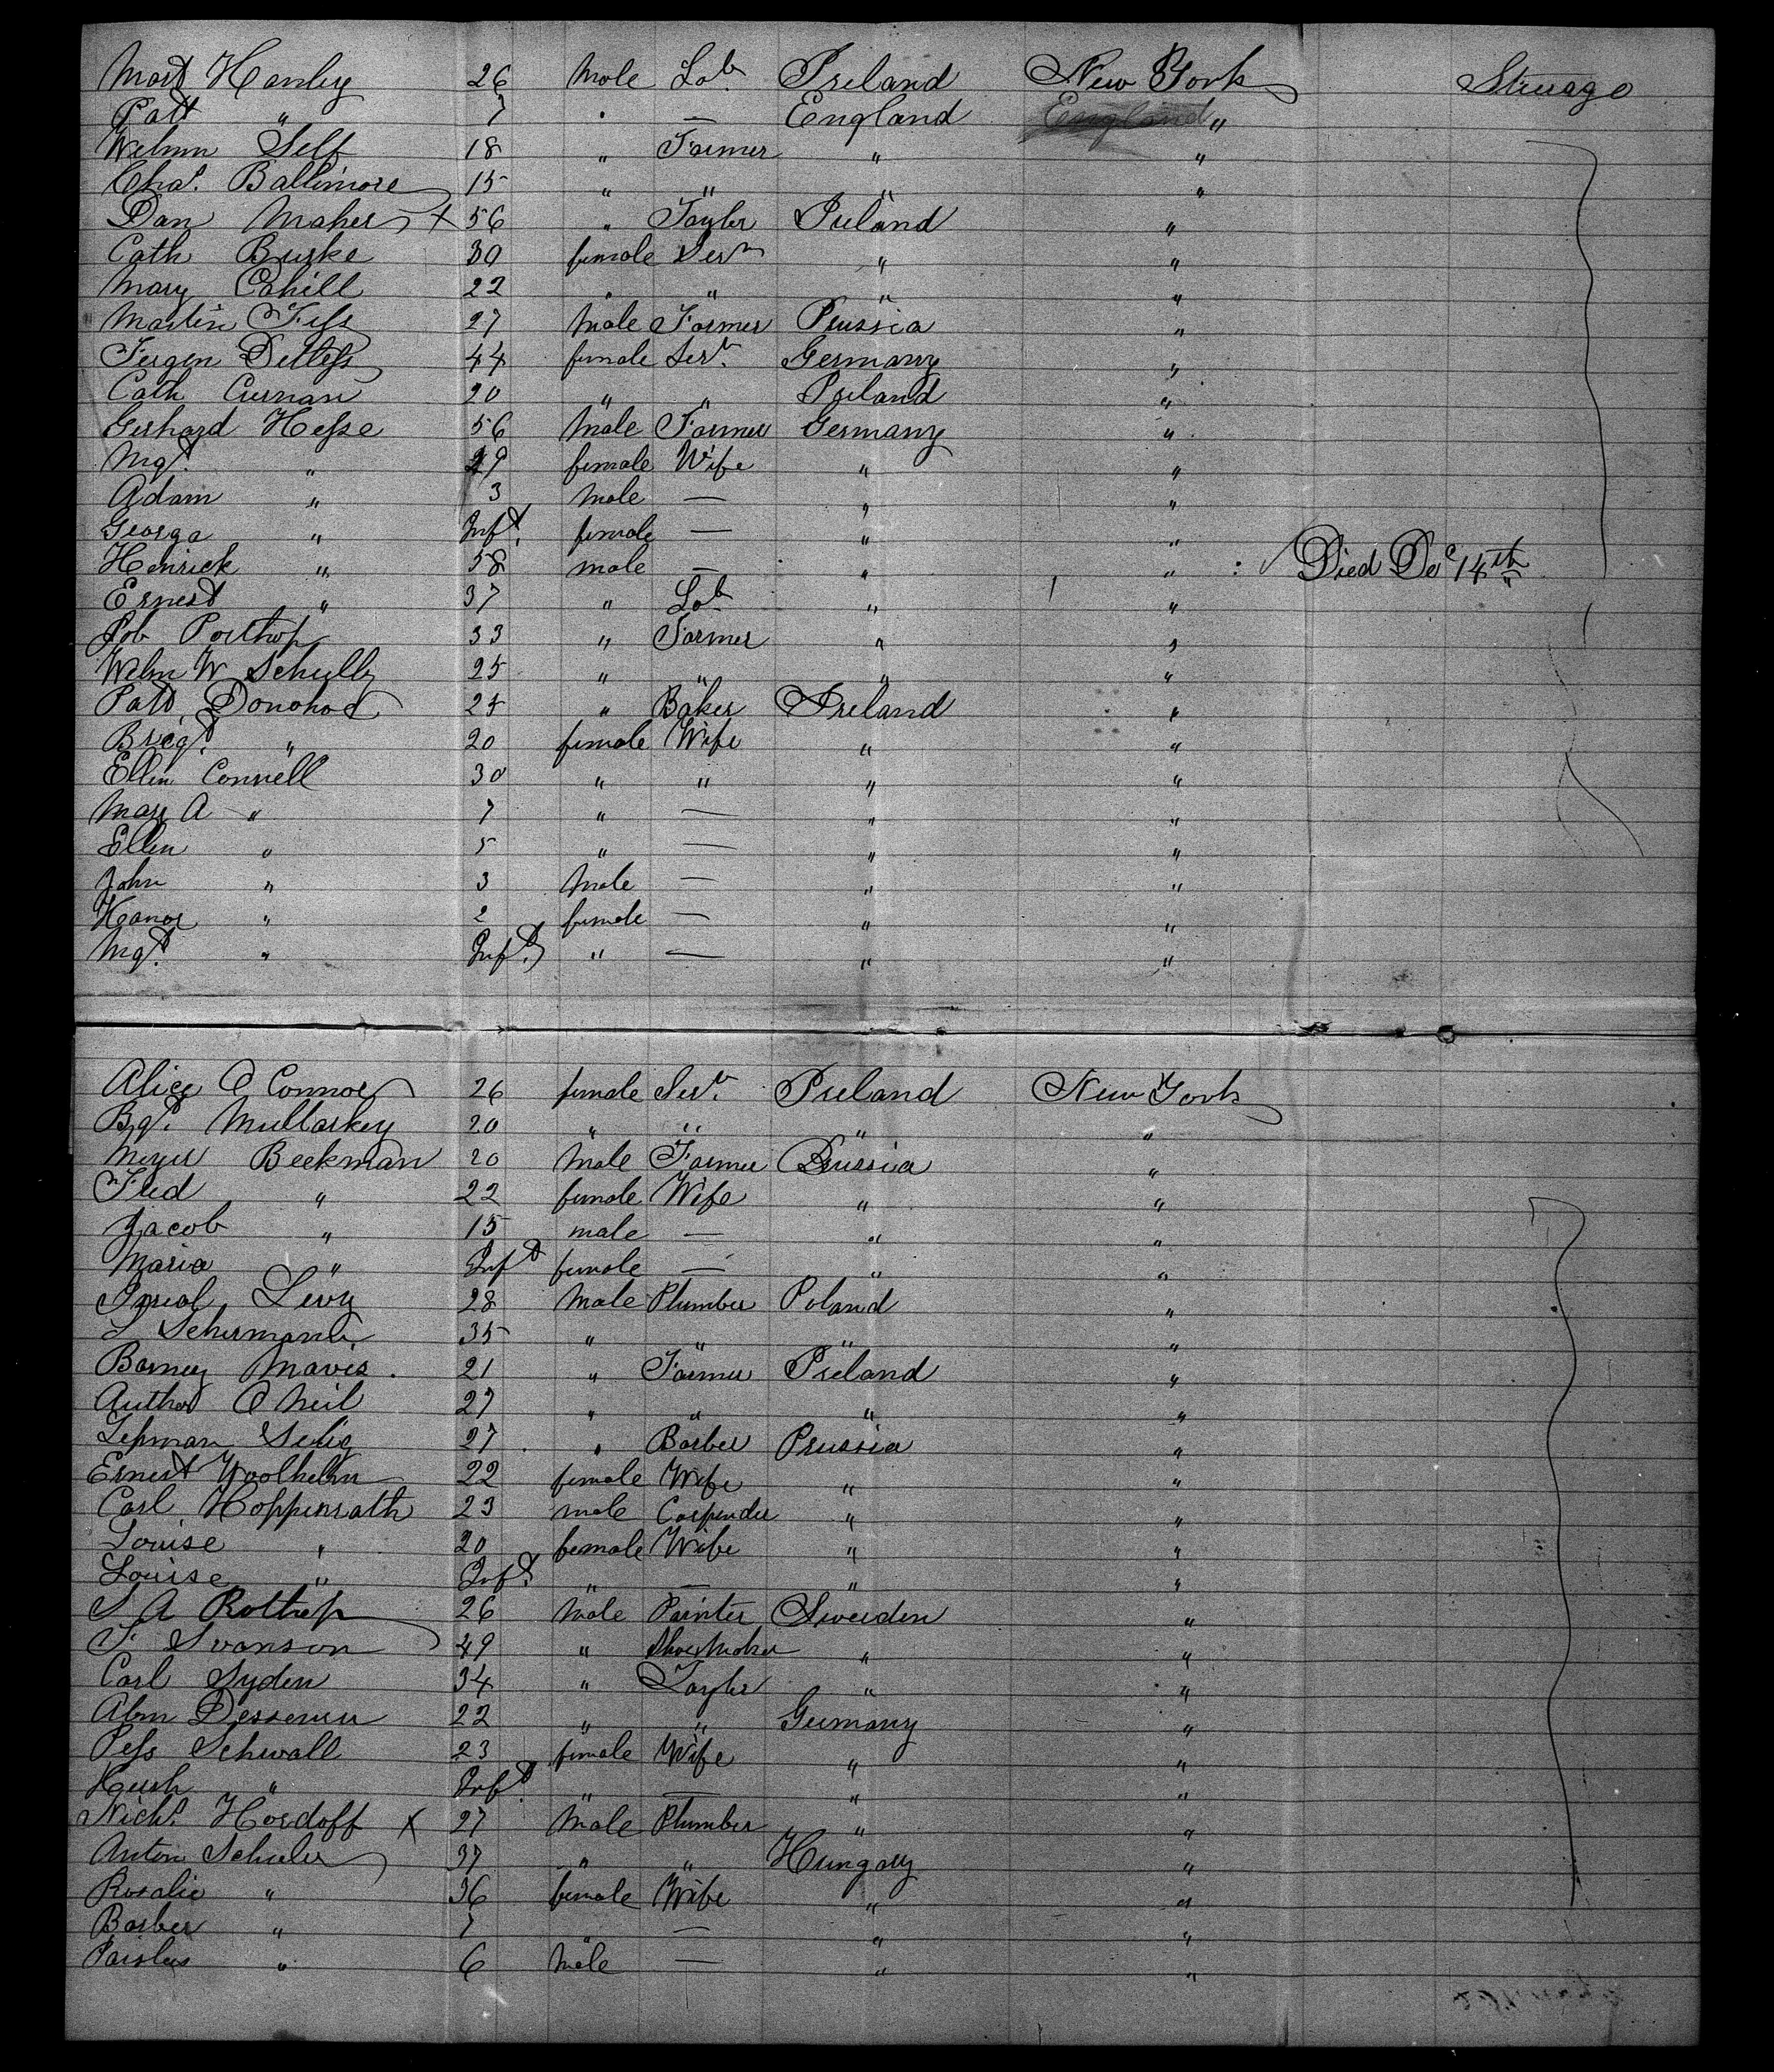 Mart Hanley 26 Male Labr. Ireland New York Steerage
Patt " 7 " — England England "
Wilmn Self 18 " Farmer " "
Chas. Baltimore 15 " " " "
Dan Maher X 56 " Tayler Ireland "
Cath Burke 30 female Servn " "
Mary Cahill 22 " " " "
Martin Fess 27 Male Farmer Prussia "
Jurgen Detlefs 44 female Servt. Germany "
Cath Curnan 20 " " Ireland "
Gerhard Hesse 56 Male Farmer Germany "
Mgt. " 29 female Wife " "
Adam " 3 Male — " "
George " Inft. female — " "
Henrick " 58 male — " " : Died Dec 14th
Ernest " 37 " Labr " "
Job Porthop 33 " Farmer " "
Wilm W Schultz 25 " " " "
Patt Donohod 25 " Baker Ireland "
Brigt. " 20 female Wife " "
Ellen Connell 30 " " " "
Mary A " 7 " — " "
Ellen " 5 " — " "
John " 3 Male — " "
Hanor " 2 female — " "
Mgt. " Inft. " — " "
Alice O Connor 26 female Servt. Ireland New York
Bgt. Mullarkey 20 " " " "
Meyer Beekman 20 Male Farmer Prussia "
Fred " 22 female Wife " "
Jacob " 15 male — " "
Maria " Inft female — " "
Isreal Levy 28 Male Plumber Poland "
S Schermann 35 " " " "
Barney Mavis. 21 " Farmer Ireland "
Author O Neil 27 " " " "
Lepman Selig 27 " Barber Prussia "
Ernest Woolhelm 22 female Wife " "
Carl Hoppenrath 23 male Carpender " "
Louise " 20 female Wife " "
Louise " Inft. " — " "
S A Roltrop 26 Male Painter Sweiden "
F. Svanson 49 " Shoe Maker " "
Carl Syden 34 " Tayler " "
Abm Desserner 22 " " Germany "
Pefs Schwall 23 female Wife " "
Hersh " Inft. " — " "
Nichs. Hordoff X 27 Male Plumber " "
Anton Schuler 37 " " Hungary "
Rosalie " 36 female Wife " "
Barber " 7 " — " "
Paislus " 6 Male — " "